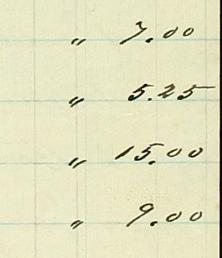 " 7.00
" 5.25
" 15.00
" 9.00